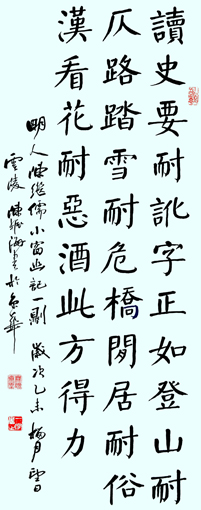 讀史要耐訛字正如登山耐
仄路踏雪耐危橋閒居耐俗
漢看花耐惡酒此方得力
明人陳繼儒小窗幽記一則 歲次乙未月
雲陵 陳海書於